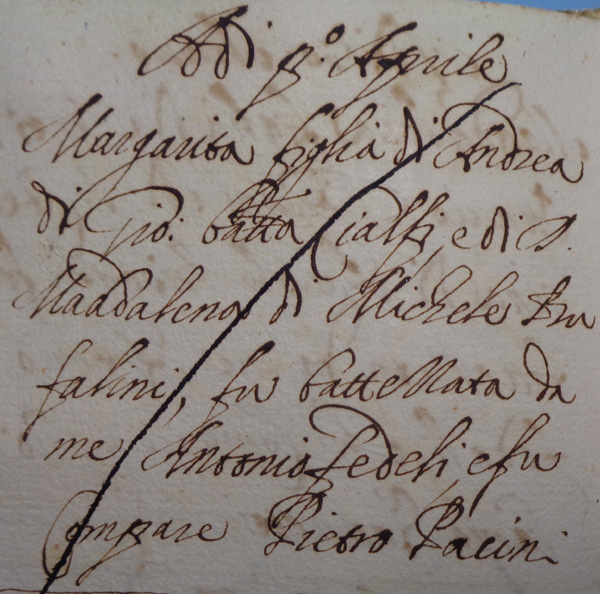 Adi p.º Aprile
Margarita figlia di Andrea
di Gio: Batta Cialfi, e di D.
Maddalena di Michele Bru
falini, fu battezzata da
me Antonio Fedeli e fu
Compare Pietro Pacini